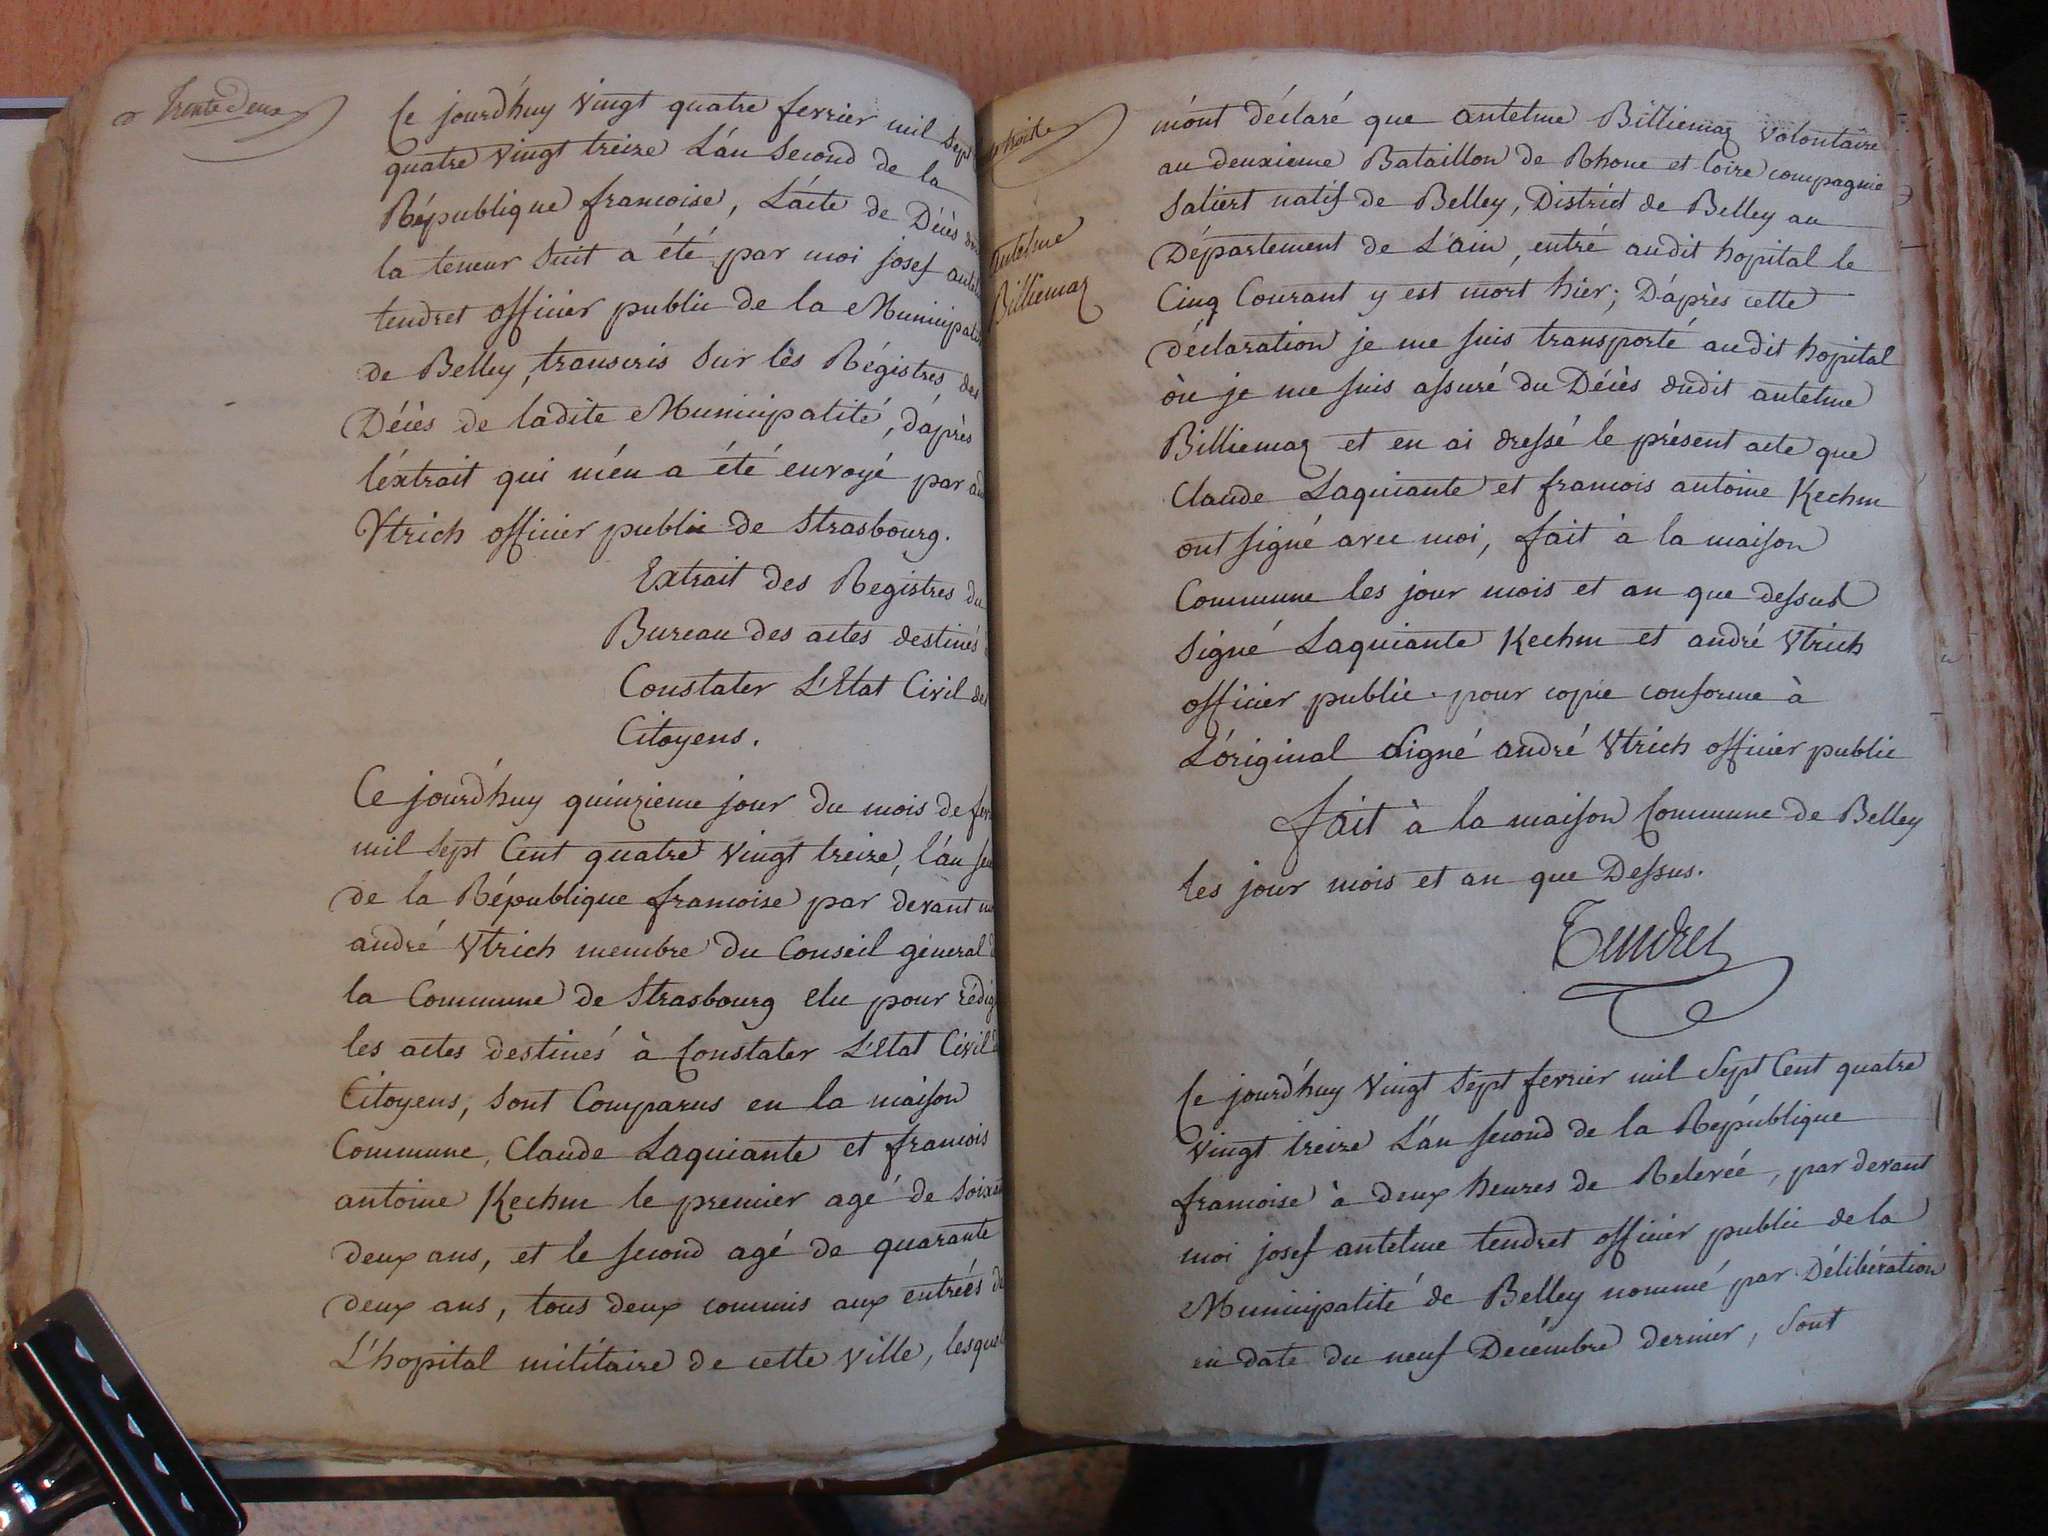 Trente Deux
Ce jourd'huy vingt quatre fevrier mil sept
quatre vingt treize L'an Second de la
République francoise, L'acte de Décès dont
la teneur Suit a été par moi josef antelme
tendret officier public de la Municipalité
de Belley, transcris Sur les Régistres des
Décès de ladite Municipalité, d'après
l'éxtrait qui m'en a été envoyé par
Vtrich officier public de Strasbourg.
Extrait des Registres du
Bureau des actes destinés
Constater L'Etat Civil des
Citoyens.
Ce jourd'huy quinzieme jour du mois de fev
mil Sept Cent quatre Vingt treize, l'an
de la République francoise par devant
andré Vtrich membre du Conseil géneral
la Commune de Strasbourg elu pour rédig
les actes destinés à Constater L'Etat Civil
Citoyens, Sont Comparus en la maison
Commune, Claude Laquiante et francois
antoine Kechm le premier agé de Soixan
deux ans, et le second agé de quarante
deux ans, tous deux commis aux entreés de
L'hopital militaire de cette Ville, lesquel
antelme
Billiemaz
m'ont déclaré que antelme Billiemaz Volontaire
au deuxieme Bataillon de Rhone et loire compagnie
Saliert natif de Belley, District de Belley au
Département de L'ain, entré audit hopital le
Cinq Courant y est mort hier; D'après cette
déclaration je me suis transporté audit hopital
où je me suis assuré du Décès dudit antelme
Billiemaz et en ai dressé le présent acte que
Claude Laquiante et francois antoine Kechm
ont signé avec moi, fait à la maison
Commune les jour mois et an que dessus
Signé Laquiante Kechm et andré Vtrich
officier public. pour copie conforme à
L'original Signé andré Vtrich officier public
fait à la maison Commune de Belley
les jour mois et an que Dessus.
Tendret
Ce jourd'huy Vingt Sept fevrier mil Sept Cent quatre
Vingt treize L'an second de la République
francoise à deux heures de Relevée, par devant
moi josef antelme tendret officier public de la
Municipalité de Belley nommé par Délibération
en date du neuf Decémbre dernier, Sont